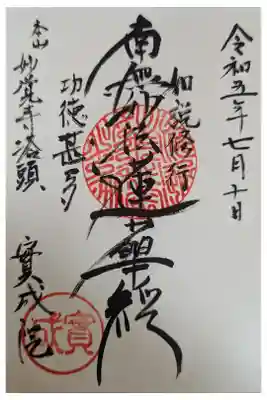 令和五年七月十日
如説修行
南無妙法蓮華経
功徳甚多
本山妙覚寺塔頭
實成院